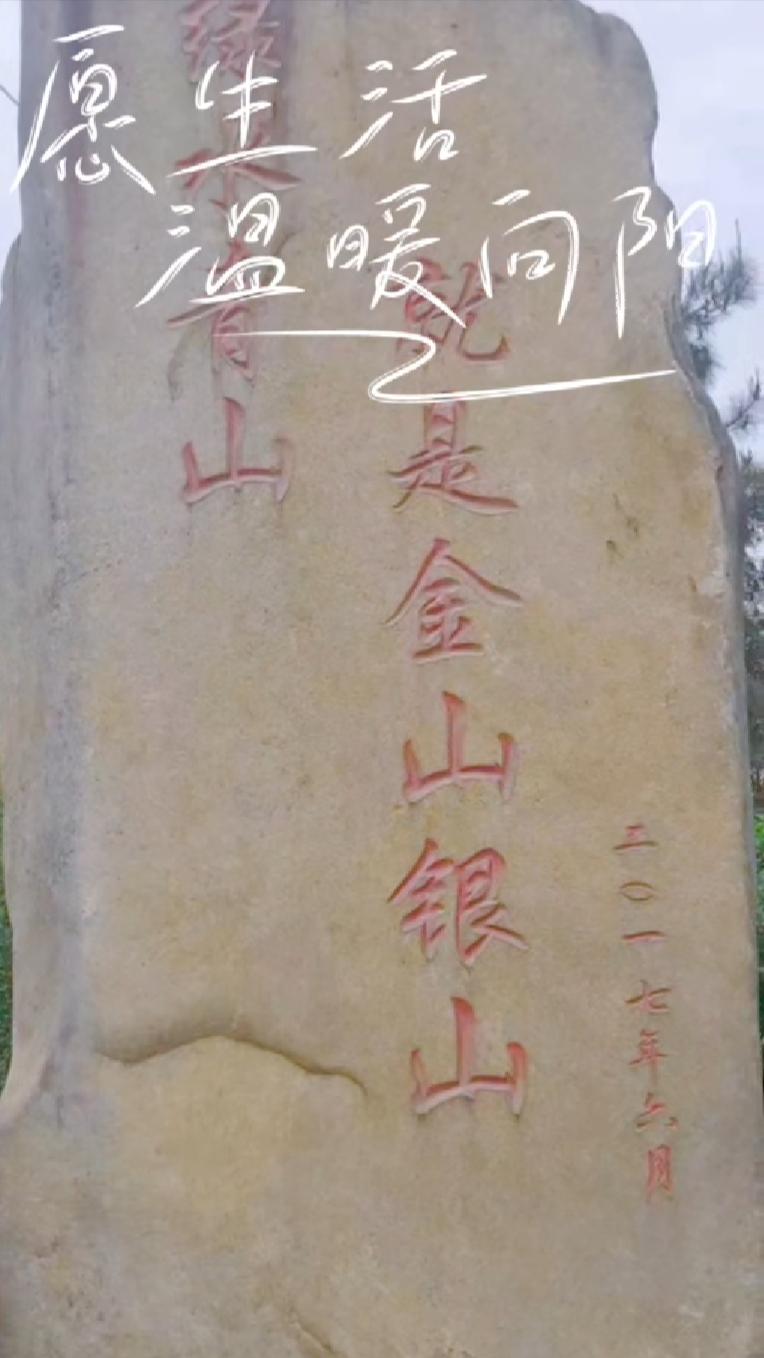 愿生活
温暖向阳
绿水青山
就是金山银山
二〇一七年六月